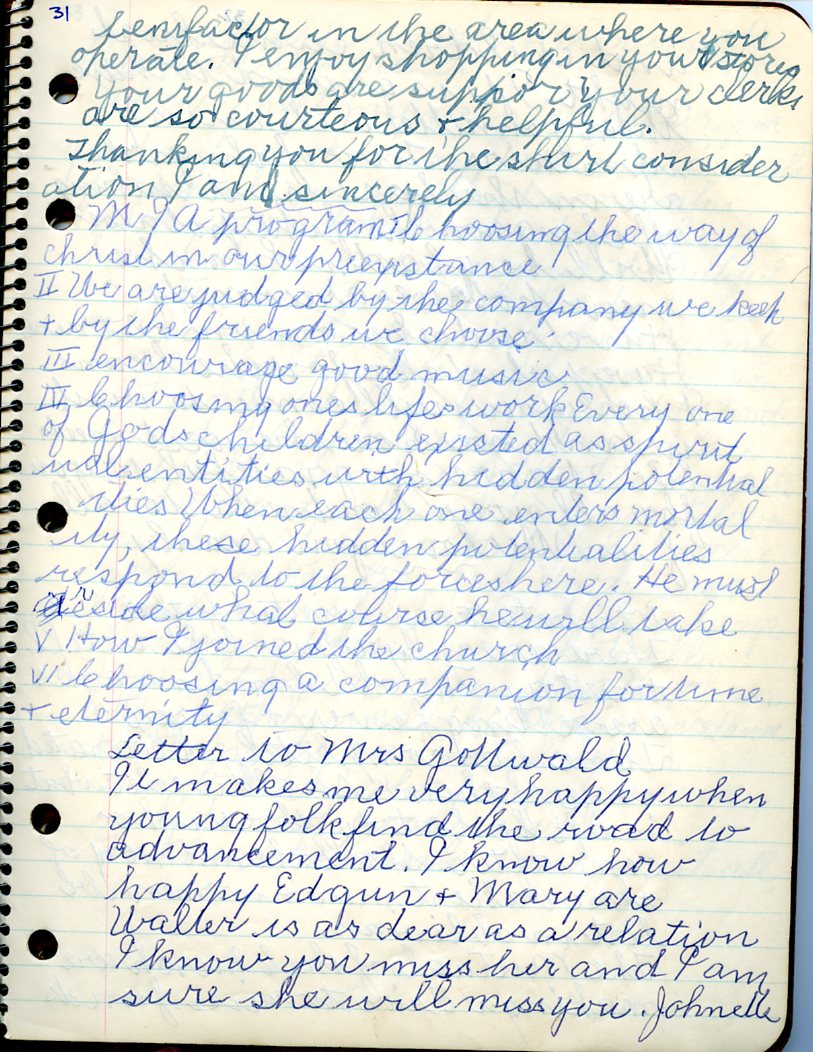 31
benifactor in the area where you
operate. I enjoy shopping in your stores
your goods are your clerks
are so courteous + helpful.
Thanking you for the shirt consider
ation I am sincerely
M I A program I Choosing the way of
christ in our preexistance
II We are judged by the company we keep
+ by the friends we choose
III encourage good music
III Choosing ones life work Every one
of Gods children existed as spirit
ual entities with hidden potential
ities When each one enters mortal
ity, these hidden potentialities
respond to the forces here. He must
deside what course he will take
V How I joined the church
VI Choosing a companion for time
+ eternity
Letter to Mrs Gottwald
It makes me very happy when
young folk find the road to
advancement. I know how
happy Edgun + Mary are
Walter is as dear as a relation
I know you miss her and I am
sure she will miss you. Johnette